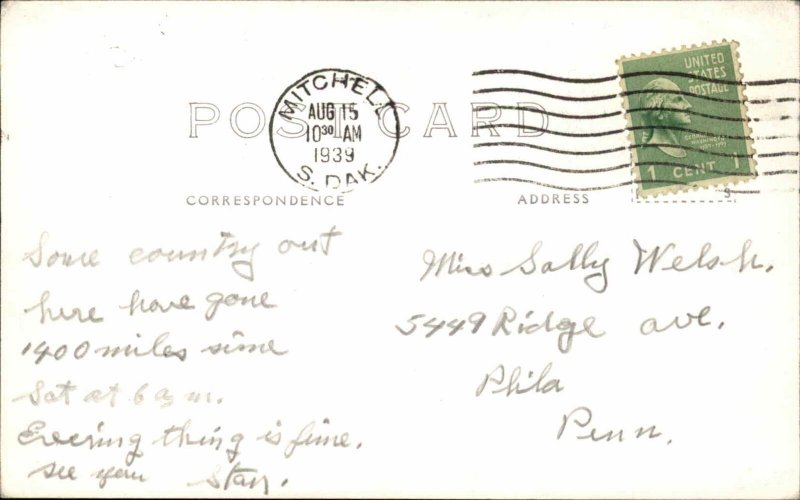 UNITED
STATES
POSTAGE
1 CENT 1
MITCHELL
AUG 15
10 30 AM
1939
S. DAK.
POST CARD
CORRESPONDENCE
ADDRESS
Some country out
here have gone
1400 miles sinse
Sat at 6 a.m.
Evering thing is fine.
See you Stan.
Miss Sally Welsh.
5449 Ridge ave.
Phila
Penn.